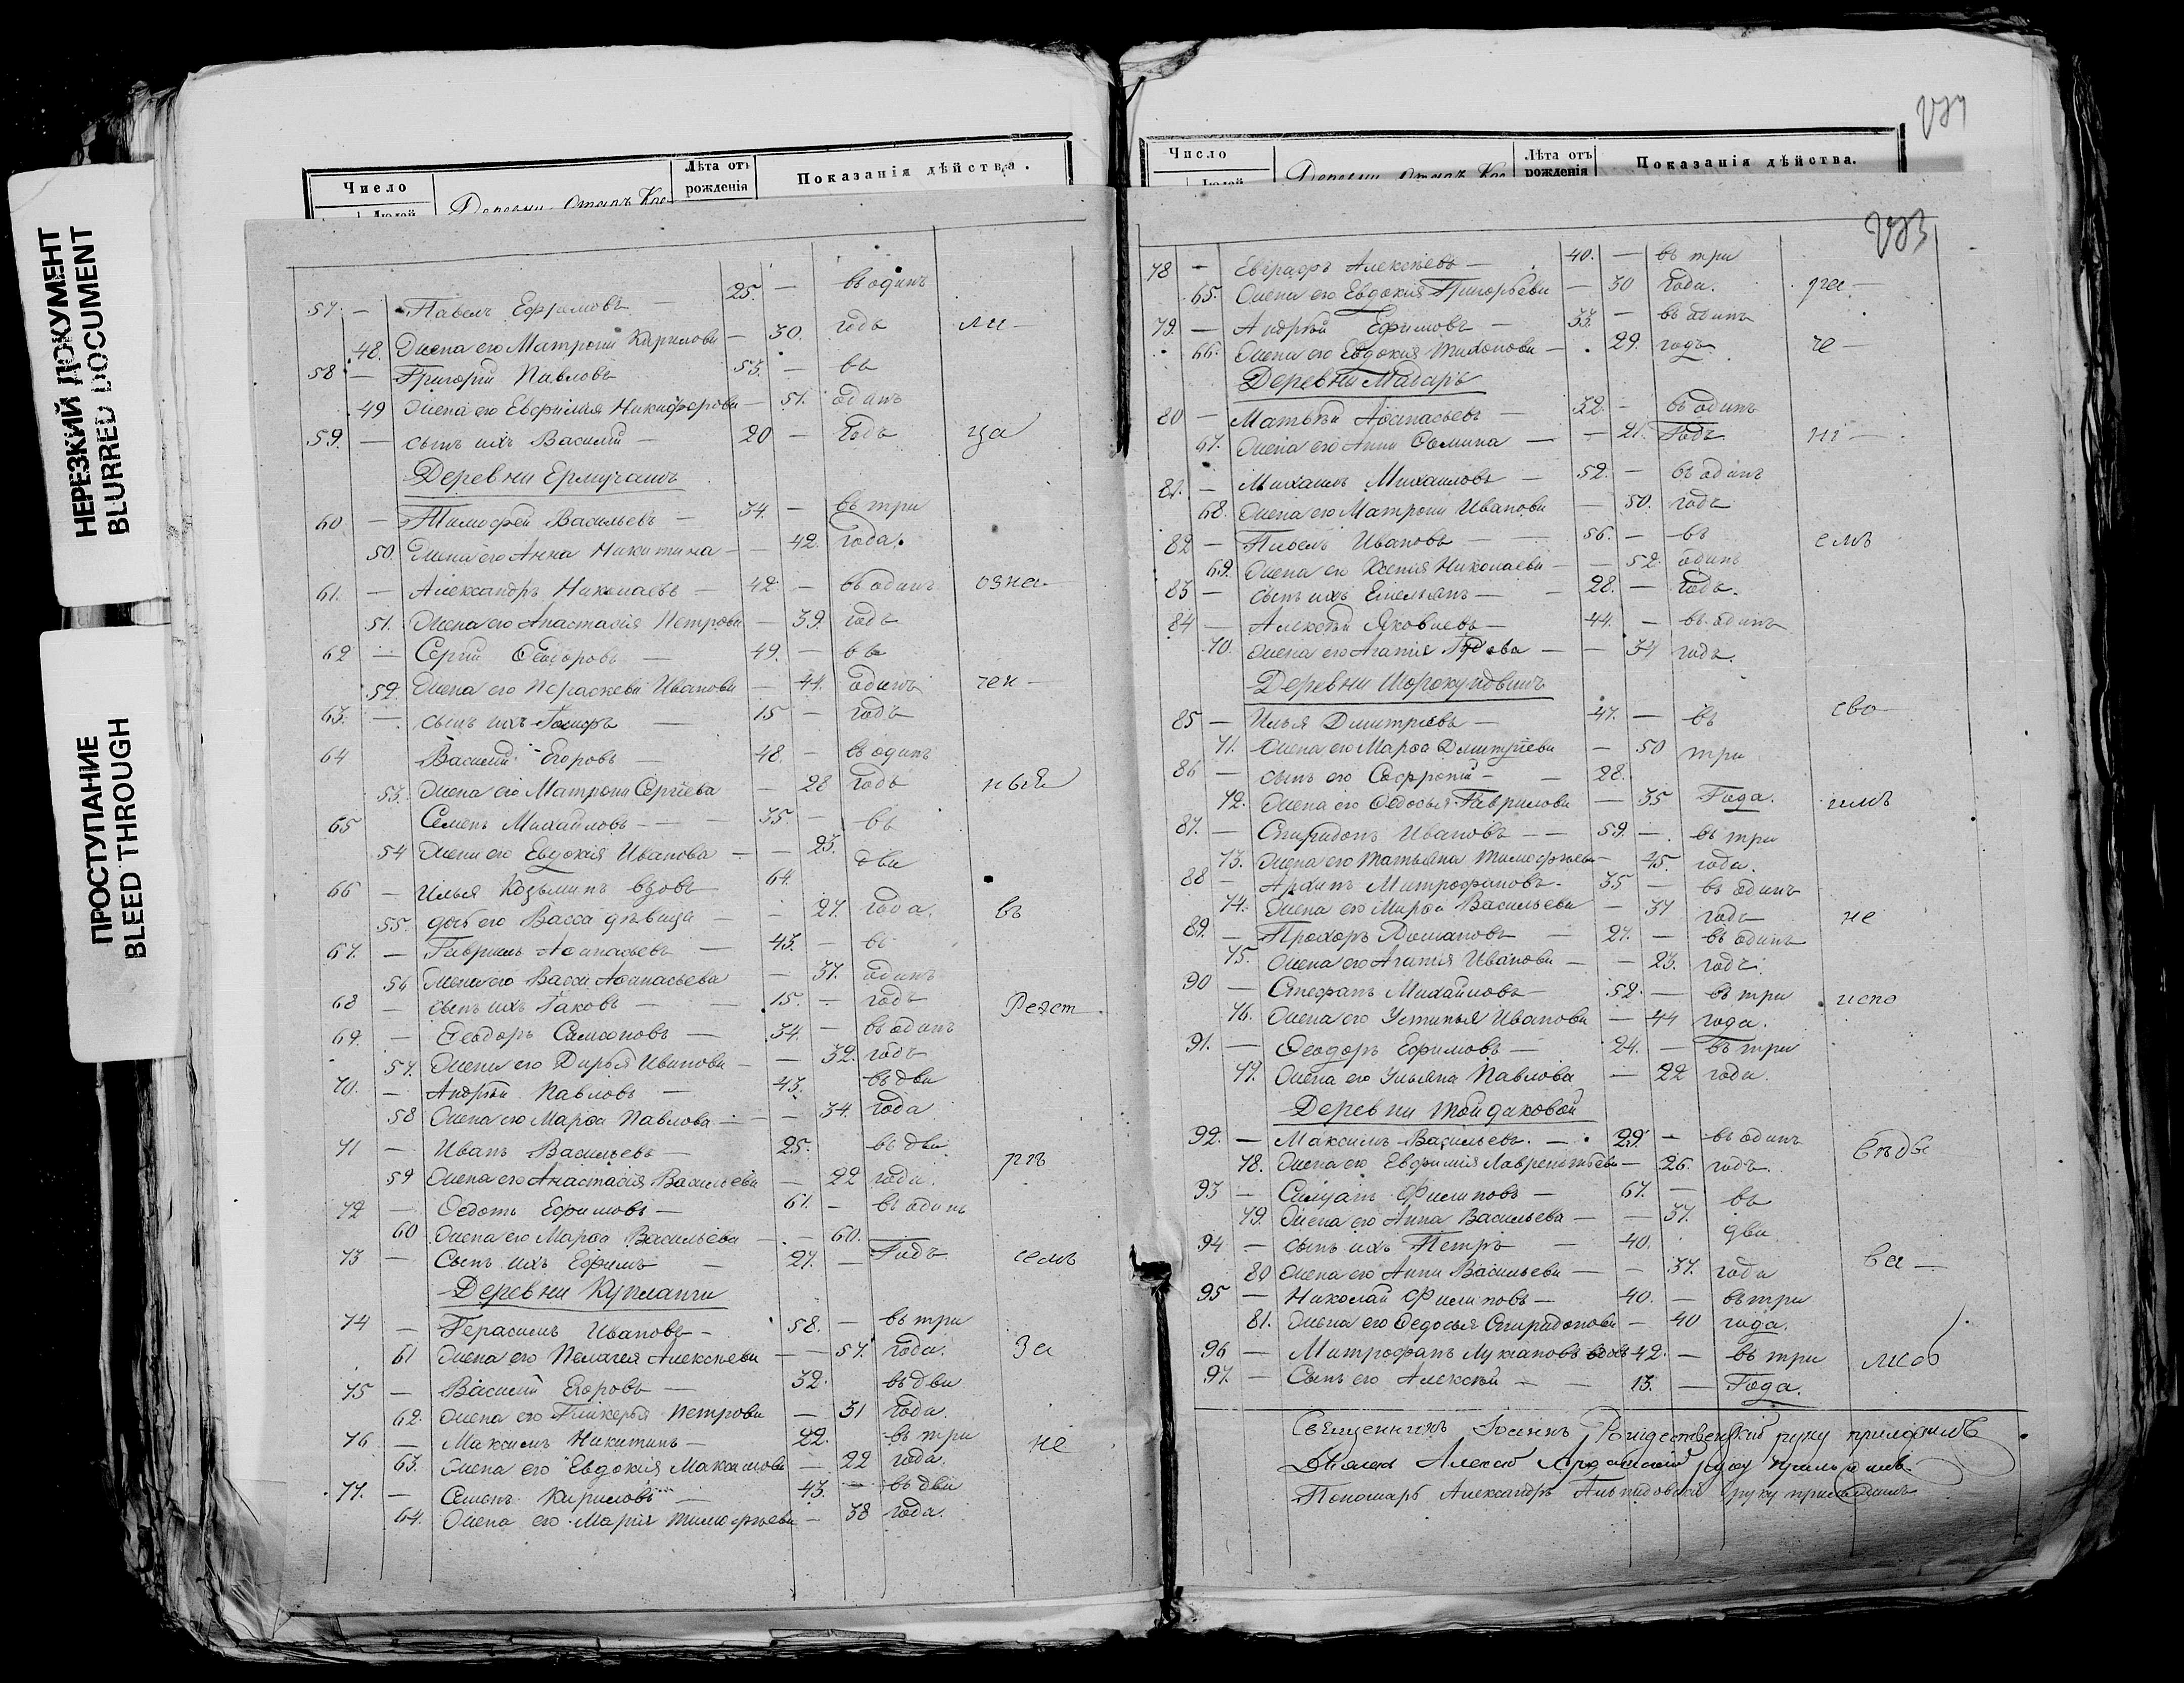 НЕРЕЗКИЙ ДОКУМЕНТ
BLURRED DOCUMENT
ПРОСТУПАНИЕ
BLEED THROUGH
Число Лѣта отъ рожденія Показанія дѣйства.
Людей Деревни
57. — Павелъ Ефимовъ — 25. — въ одинъ
48. Жена его Матрона Кирилова — 30. годъ ли —
58 — Григорій Павловъ 53. — въ
49 Жена его Евфимія Никифорова — 51. одинъ
59. — сынъ ихъ Василій — 20 — годъ ца
Деревни Ермучашъ
60 — Тимофей Васильевъ — 34. — въ три
50. Жена его Анна Никитина — — 42. года.
61. — Александръ Николаевъ — 42. — въ одинъ озна-
51. Жена его Анастасія Петрова — 39. годъ
62 — Сергій Ѳеодоровъ — 49. — въ
52. Жена его Параскева Иванова — 44. одинъ чен —
63. — сынъ ихъ Іосифъ — 15 — годъ
64 Василій Егоровъ — 48. — въ одинъ
53. Жена его Матрона Сергіева — 28 годъ ныя
65 Семенъ Михайловъ — — 35. — въ
54 Жена его Евдокія Иванова — — 23. два
66 — Илья Козьминъ вдовъ 64.
55. дочь его Васса дѣвица — — 27. года. въ
67. — Гавріилъ Аѳанасьевъ — 43. — въ
56 Жена его Васса Аѳанасьева — 37. одинъ
68 — сынъ ихъ Іаковъ — — 15. — годъ Реэст
69. — Ѳеодоръ Самсоновъ — 34. — въ одинъ
57. Жена его Дарья Иванова — — 32. годъ
70. — Андрей Павловъ — 43. въ два
58 Жена его Марѳа Павлова — — 34. года
71 — Иванъ Васильевъ — 25. въ два
59 Жена его Анастасія Васильева — 22 года. рѣ
72 — Ѳедотъ Ефимовъ — 61. — въ одинъ
60 Жена его Марѳа Васильева — — 60.
73 — Сынъ ихъ Ефимъ — 27. — Годъ семъ
Деревни Купланги
74 — Герасимъ Ивановъ — 58. — въ три
61 Жена его Пелагея Алексѣева — — 57. года. За
75 — Василій Егоровъ — 32. въ два
62. Жена его Гликерья Петрова — 31 года.
76 — Максимъ Никитинъ — 22. въ три не
63. Жена его Евдокія Максимова — 22 года.
77. — Семенъ Кириловъ — 43. — въ два
64. Жена его Марія Тимофѣева — 38 года.
Число Лѣта отъ рожденія Показанія дѣйства.
Людей Деревни
78 — Евграфъ Алексѣевъ — 40. — въ три
65. Жена его Евдокія Григорьева — 30 года.
79. — Андрей Ефимовъ — 33. — въ одинъ
66. Жена его Евдокія Тихонова — 29. годъ че —
Деревни Мадаръ
80 — Матвѣй Аѳанасьевъ — 32. — въ одинъ
67. Жена его Анна Ѳомина — — 21. Годъ ні —
81. — Михаилъ Михаиловъ — 52. — въ одинъ
68. Жена его Матрона Иванова — 50. годъ
82 — Павелъ Ивановъ — — 56. — въ емъ
69. Жена его Ксенія Николаева — — 52. одинъ
83 — сынъ ихъ Емельянъ — — 28. — годъ.
84 — Алексѣй Яковлевъ — 44. — въ одинъ
70. Жена его Агаѳія — — 34 годъ.
85 — Илья Дмитріевъ — 47. — въ сво
71. Жена его Марѳа Дмитріева — 50 три
86 — сынъ его Софроній — — 28.
72. Жена его Ѳедосья Гаврилова — 35 Года. имъ
87. — Спиридонъ Ивановъ — — 59. — въ три
73. Жена его Татьяна Тимофѣева — 45. года.
88 — Архипъ Митрофановъ. 35 — въ одинъ
74. Жена его Марѳа Васильева — 37 годъ не
89. — Прохоръ Романовъ — 27. — въ одинъ
75. Жена его Агаѳія Иванова — — 23. годъ.
90 — Стефанъ Михайловъ 52. — въ три испо
76. Жена его Устинья Иванова — 44 года.
91. — Ѳеодоръ Ефимовъ — 24. — въ три
77. Жена его Ульяна Павлова — 22 года.
Деревни Тойдаковой
92. — Максимъ Васильевъ. — 29. — въ одинъ вѣды
78. Жена его Евфимія Лаврентьева — 26. годъ.
93 — Филиповъ — 67. — въ
79. Жена его Анна Васильева — — 37. два
94 — сынъ ихъ Петръ — 40.
80 Жена его Анна Васильева — — 37. года ва —
95 — Николай Филиповъ — 40. — въ три
81. Жена его Ѳедосья Спиридонова — 40 года.
96 — Митрофанъ вдовъ 42. — въ три
97. — Сынъ его Алексѣй — — 13. — Года.
Священникъ Іоаннъ Рождественскій руку приложилъ
Діаконъ Алексѣй руку приложилъ.
Пономарь Александръ руку приложилъ